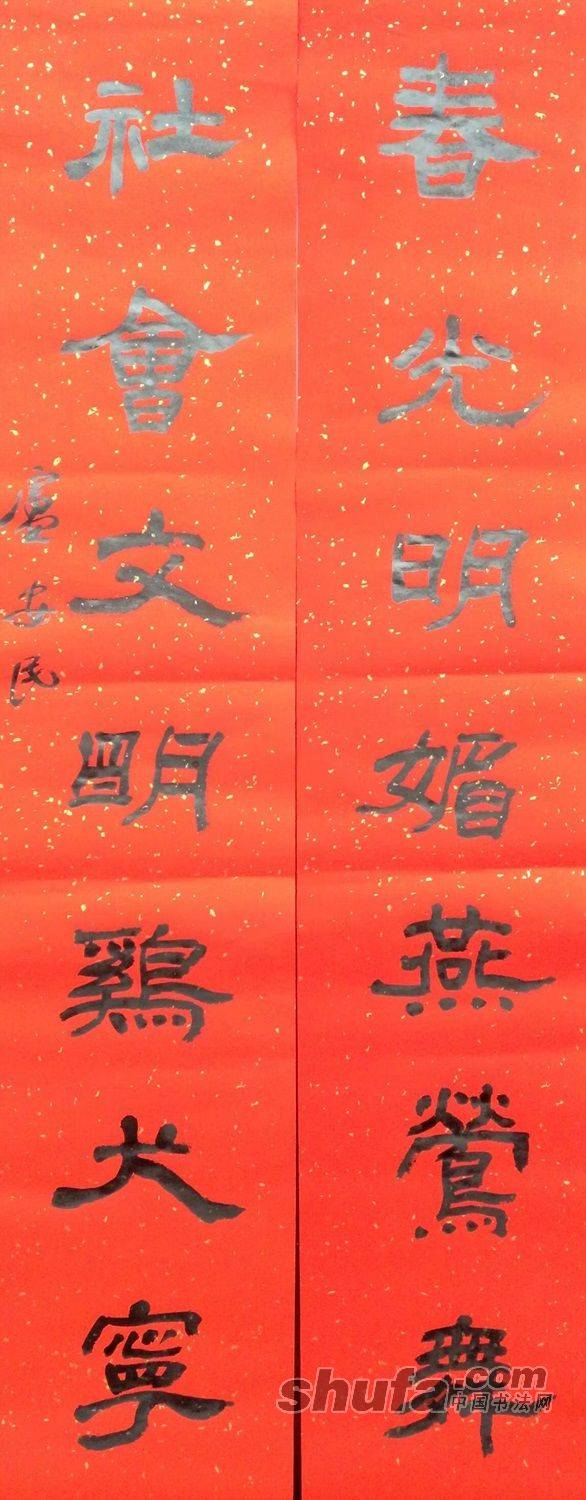 春光明媚燕鶯舞
社會文明鷄犬寧
盧安民
shufa.com
中国书法网